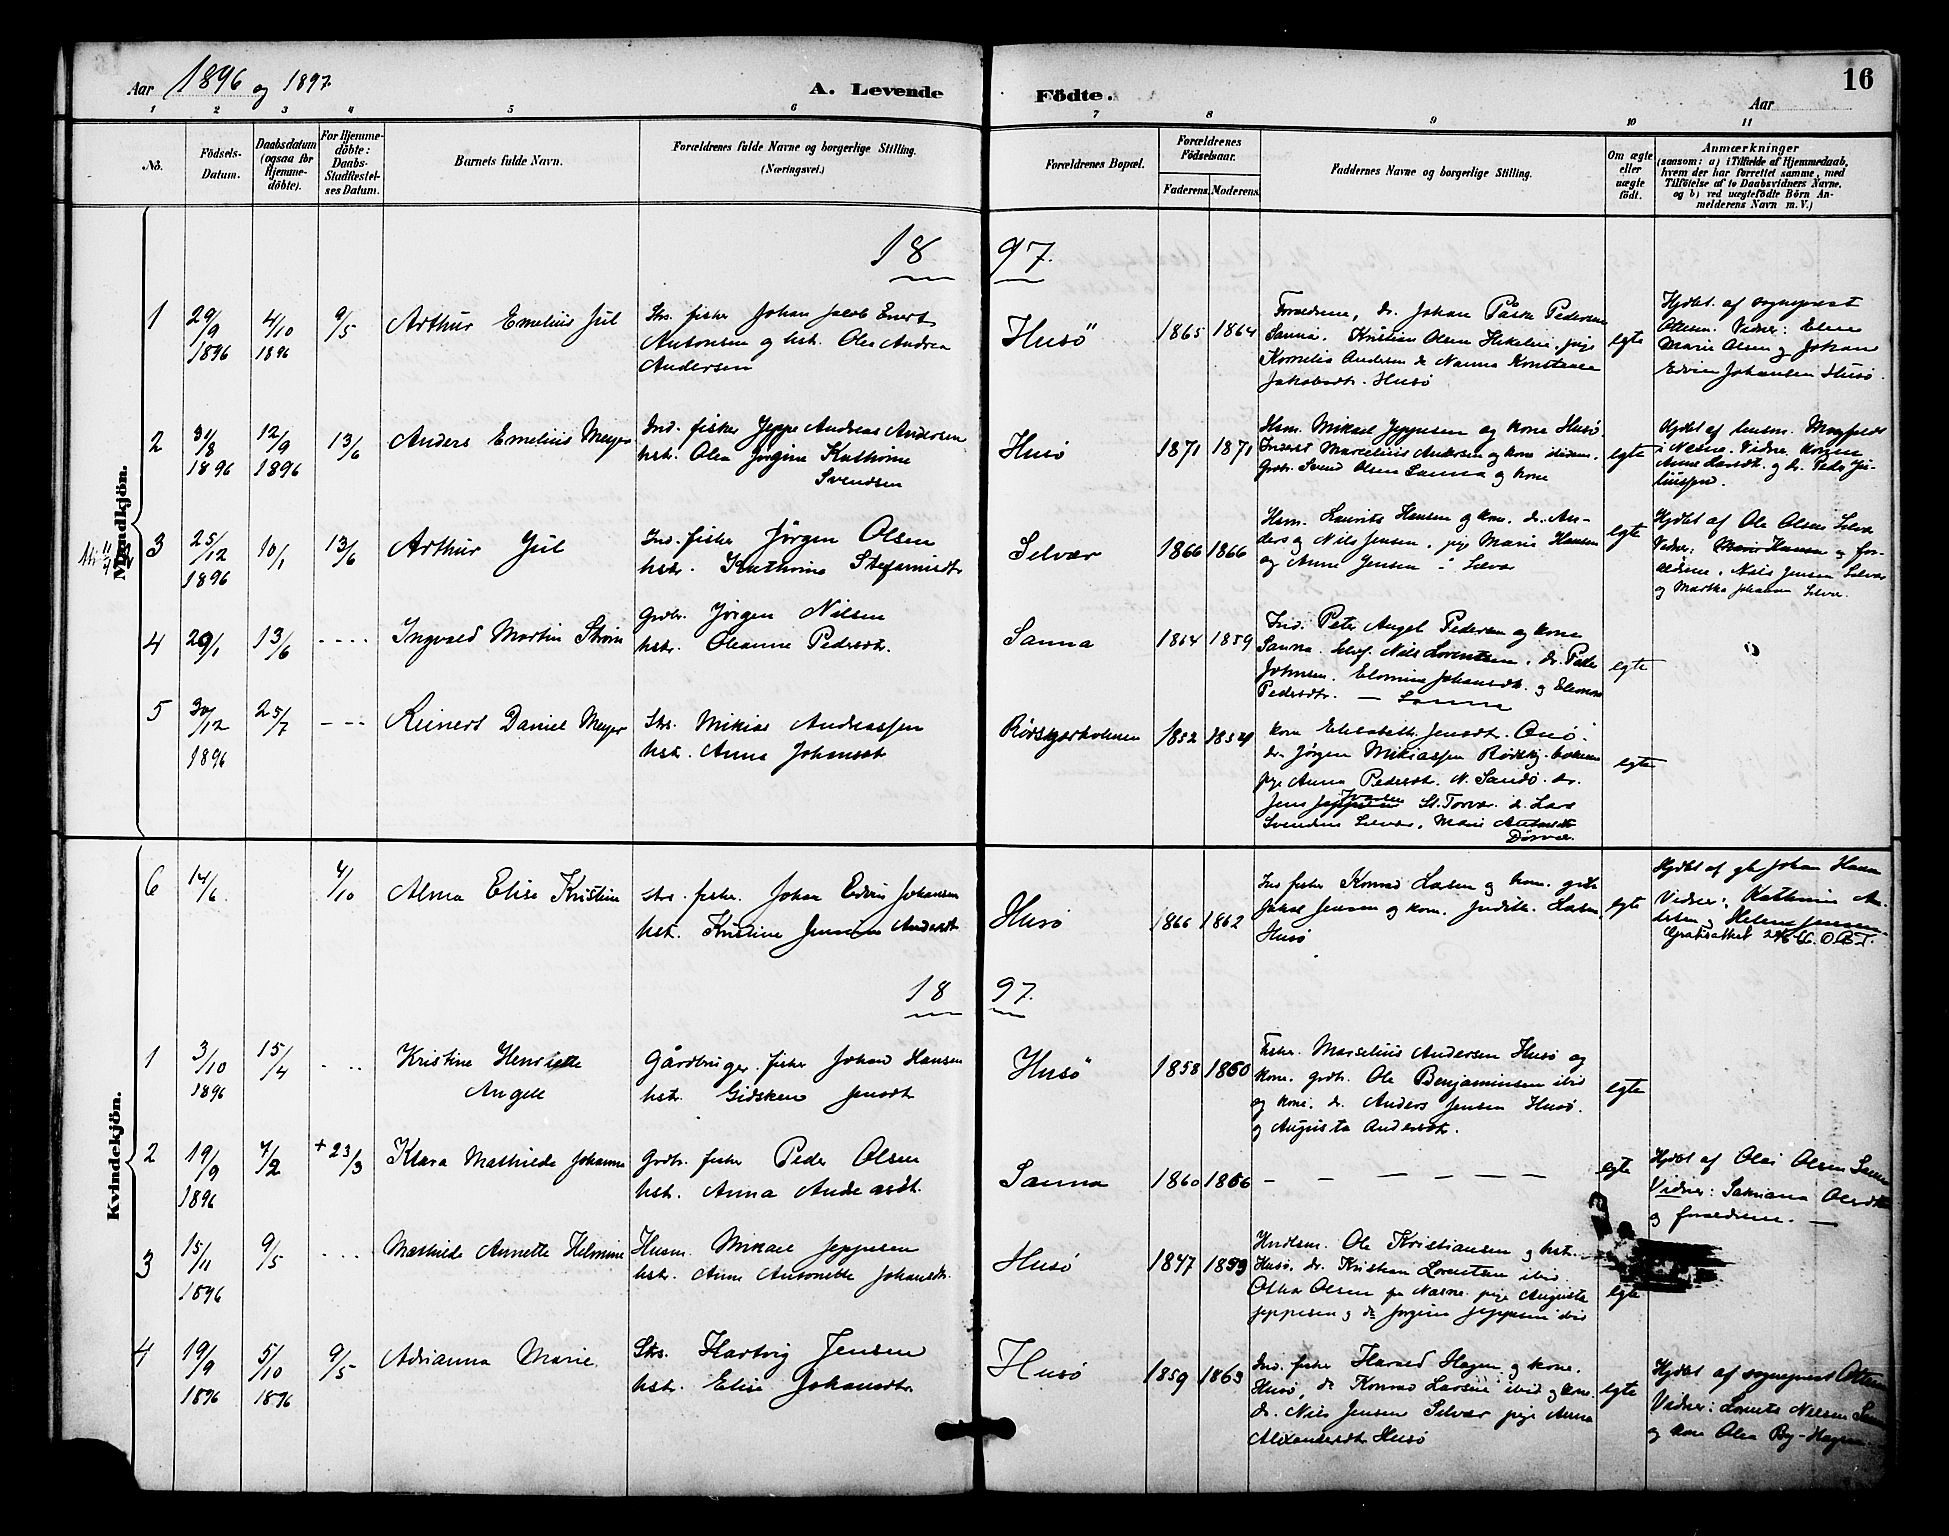 Aar 1896 og 1897.
A. Levende Födte.
Aar
16
1 2 3 4 5 6 7 8 9 10 11
No.
Födsels-
Datum.
Daabsdatum
(ogsaa for
Hjemme-
döbte).
For Hjemme-
döbte:
Daabs-
Stadfæstel-
ses Datum.
Barnets fulde Navn.
Forældrenes fulde Navne og borgerlige Stilling.
(Næringsvei.)
Forældrenes Bopæl.
Forældrenes
Födselsaar.
Faderens. Moderens.
Faddernes Navne og borgerlige Stilling.
Om ægte
eller
uægte
födt.
Anmærkninger
(saasom: a) i Tilfælde af Hjemmedaab,
hvem der har forrettet samme, med
Tilföielse af to Daabsvidners Navne,
og b) ved uægtefödte Börn An-
melderens Navn m. V.)
Mandkjön.
1897.
1
29/9 1896
4/10 1896
9/5
Arthur Emelius Jul
Strs. fisker Johan Jakob Evert
Antonsen og hst. Olea Andrea
Andersen
Husö
1865 1864
Forældrene, dr. Johan Påske Pedersen
Sanna. Kristian Olsen pige
Kornelia Andersen dr. Nanna Konstanse
Jakobsdt. Husö
egte
Hjdbt. af sogneprest
Olsen. Vidner: Elen
Marie Olsen og Johan
Edvin Johansen Husö.
2
31/8 1896
12/9 1896
13/6
Anders Emelius Meyer
Ind. fisker Jeppe Andreas Andersen
hst. Olea Jörgine Kathrine
Svendsen
Husö
1871 1871
Hsm. Mikael Jeppesen og kone Husö.
Inderst Marcelius Andersen og kone ibidem.
Grdbr. Svend Olsen Sanna og kone
egte
Hjdbt af
i Næsna. Vidner
og dr. Peder Ju-
liussen.
3
25/12 1896
10/1
13/6
Arthur Jul
Ind. fisker Jörgen Olsen
hstr. Kathrine Stefansdt
Selvær
1866 1866
Hsm. Laurits Hansen og kone. dr. An-
ders og Nils Jensen, pige Marie Hansen
og Anne Jensen i Selvær
egte
Hjdbt af Ole Olsen Selvær
Vidner: Marie Hansen og for-
ældrene. Nils Jensen Selvær
og Martha Johansen Selvær.
4
29/1
13/6
----
Ingvald Martin Ström
Grdbr. Jörgen Nilsen
hstr. Oleanna Pedersdt.
Sanna
1864 1859
Ind. Peter Angel Pedersen og kone
Sanna. Nils Lorentsen. dr. Peder
Johnsen. Johansdt. og Eleonora
Pedersdtr. — Sanna
egte
5
30/12 1896
25/7
---
Reinert Daniel Meyer
Strs. Mikias Andreassen
hst. Anna Johansdt
Rödskjærholmen
1852 1854
kone Elisabeth Jensdt. Onö.
dr. Jörgen Mikiassen Rödskj.holmen
pige Anna Pedersdt. N. Sandö. dr.
Jens Jeppesen Ivarsen St. Torvær. dr. Lars
Svendsen Selvær. Marie
Dörvær.
egte
Kvindekjön.
6
14/6
4/10
Alma Elise Kristine
Strs. fisker. Johan Edvin Johansen
hst. Kristine Jensine Andersdt.
Husö
1866 1862
Ind fisker Konrad Larsen og kone. grdb
Jakob Jensen og kone. Judith Larsen.
Husö
egte
Hjdbt af gb Johan Hansen
Vidner: Kathrine An-
dersen og Helene Jensen.
Gratisattest O.B.T.
1897.
1
3/10 1896
15/4
---
Kristine Henriette
Angele
Gårdbruger. fisker Johan Hansen
hst. Gidsken Jensdt
Husö
1858 1860
Fisker. Marselius Andersen Husö og
kone. grdb. Ole Benjaminsen ibid
og kone. dr. Anders Jensen Husö.
og Augusta Andersdt.
egte
2
19/9 1896
7/2
+ 23/3
Klara Mathilde Johanna
Grdbr. fisker Peder Olsen
hst. Anna Andersdt.
Sanna
1860 1866
— — — — — —
egte
Hjdbt af Olai Olsen Sanna
Vidner: Olsdtr
og forældrene. —
3
15/11 1896
9/5
----
Mathilde Annette Helmine
Husm. Mikael Jeppesen
hstr. Anne Antonette Johansdt.
Husö
1847 1853
Husm. Ole Kristiansen og hst.
Husö. dr. Kristian Lorentsen ibid
Olsen fra Næsne. pige Augusta
Jeppesen og dr Jörgen Jeppesen ibid
egte
4
19/9 1896
5/10 1896
9/5
Adrianna Marie.
Strs. Hartvig Jensen
hst. Elise Johansdtr.
Husö
1859 1863
Ind. fisker Harald Hagen og kone.
Husö, dr Konrad Larsen ibid og kone.
dr. Nils Jensen Selvær pige Anna
Alexandersdt Husö
egte
Hjdbt af sogneprest Olsen
Vidner: Lorents Nilsen Sanna
og kone Olea By-Hagen.